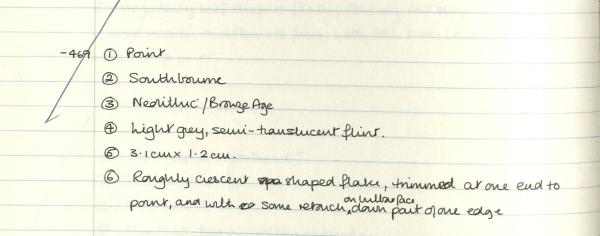 -469 ① Point
② Southbourne
③ Neolithic/Bronze Age
④ Light grey, semi-translucent flint.
⑤ 3.1cm x 1.2cm.
⑥ Roughly crescent shaped flake, trimmed at one end to
point, and with some retouch, on bulbar face, down part of one edge